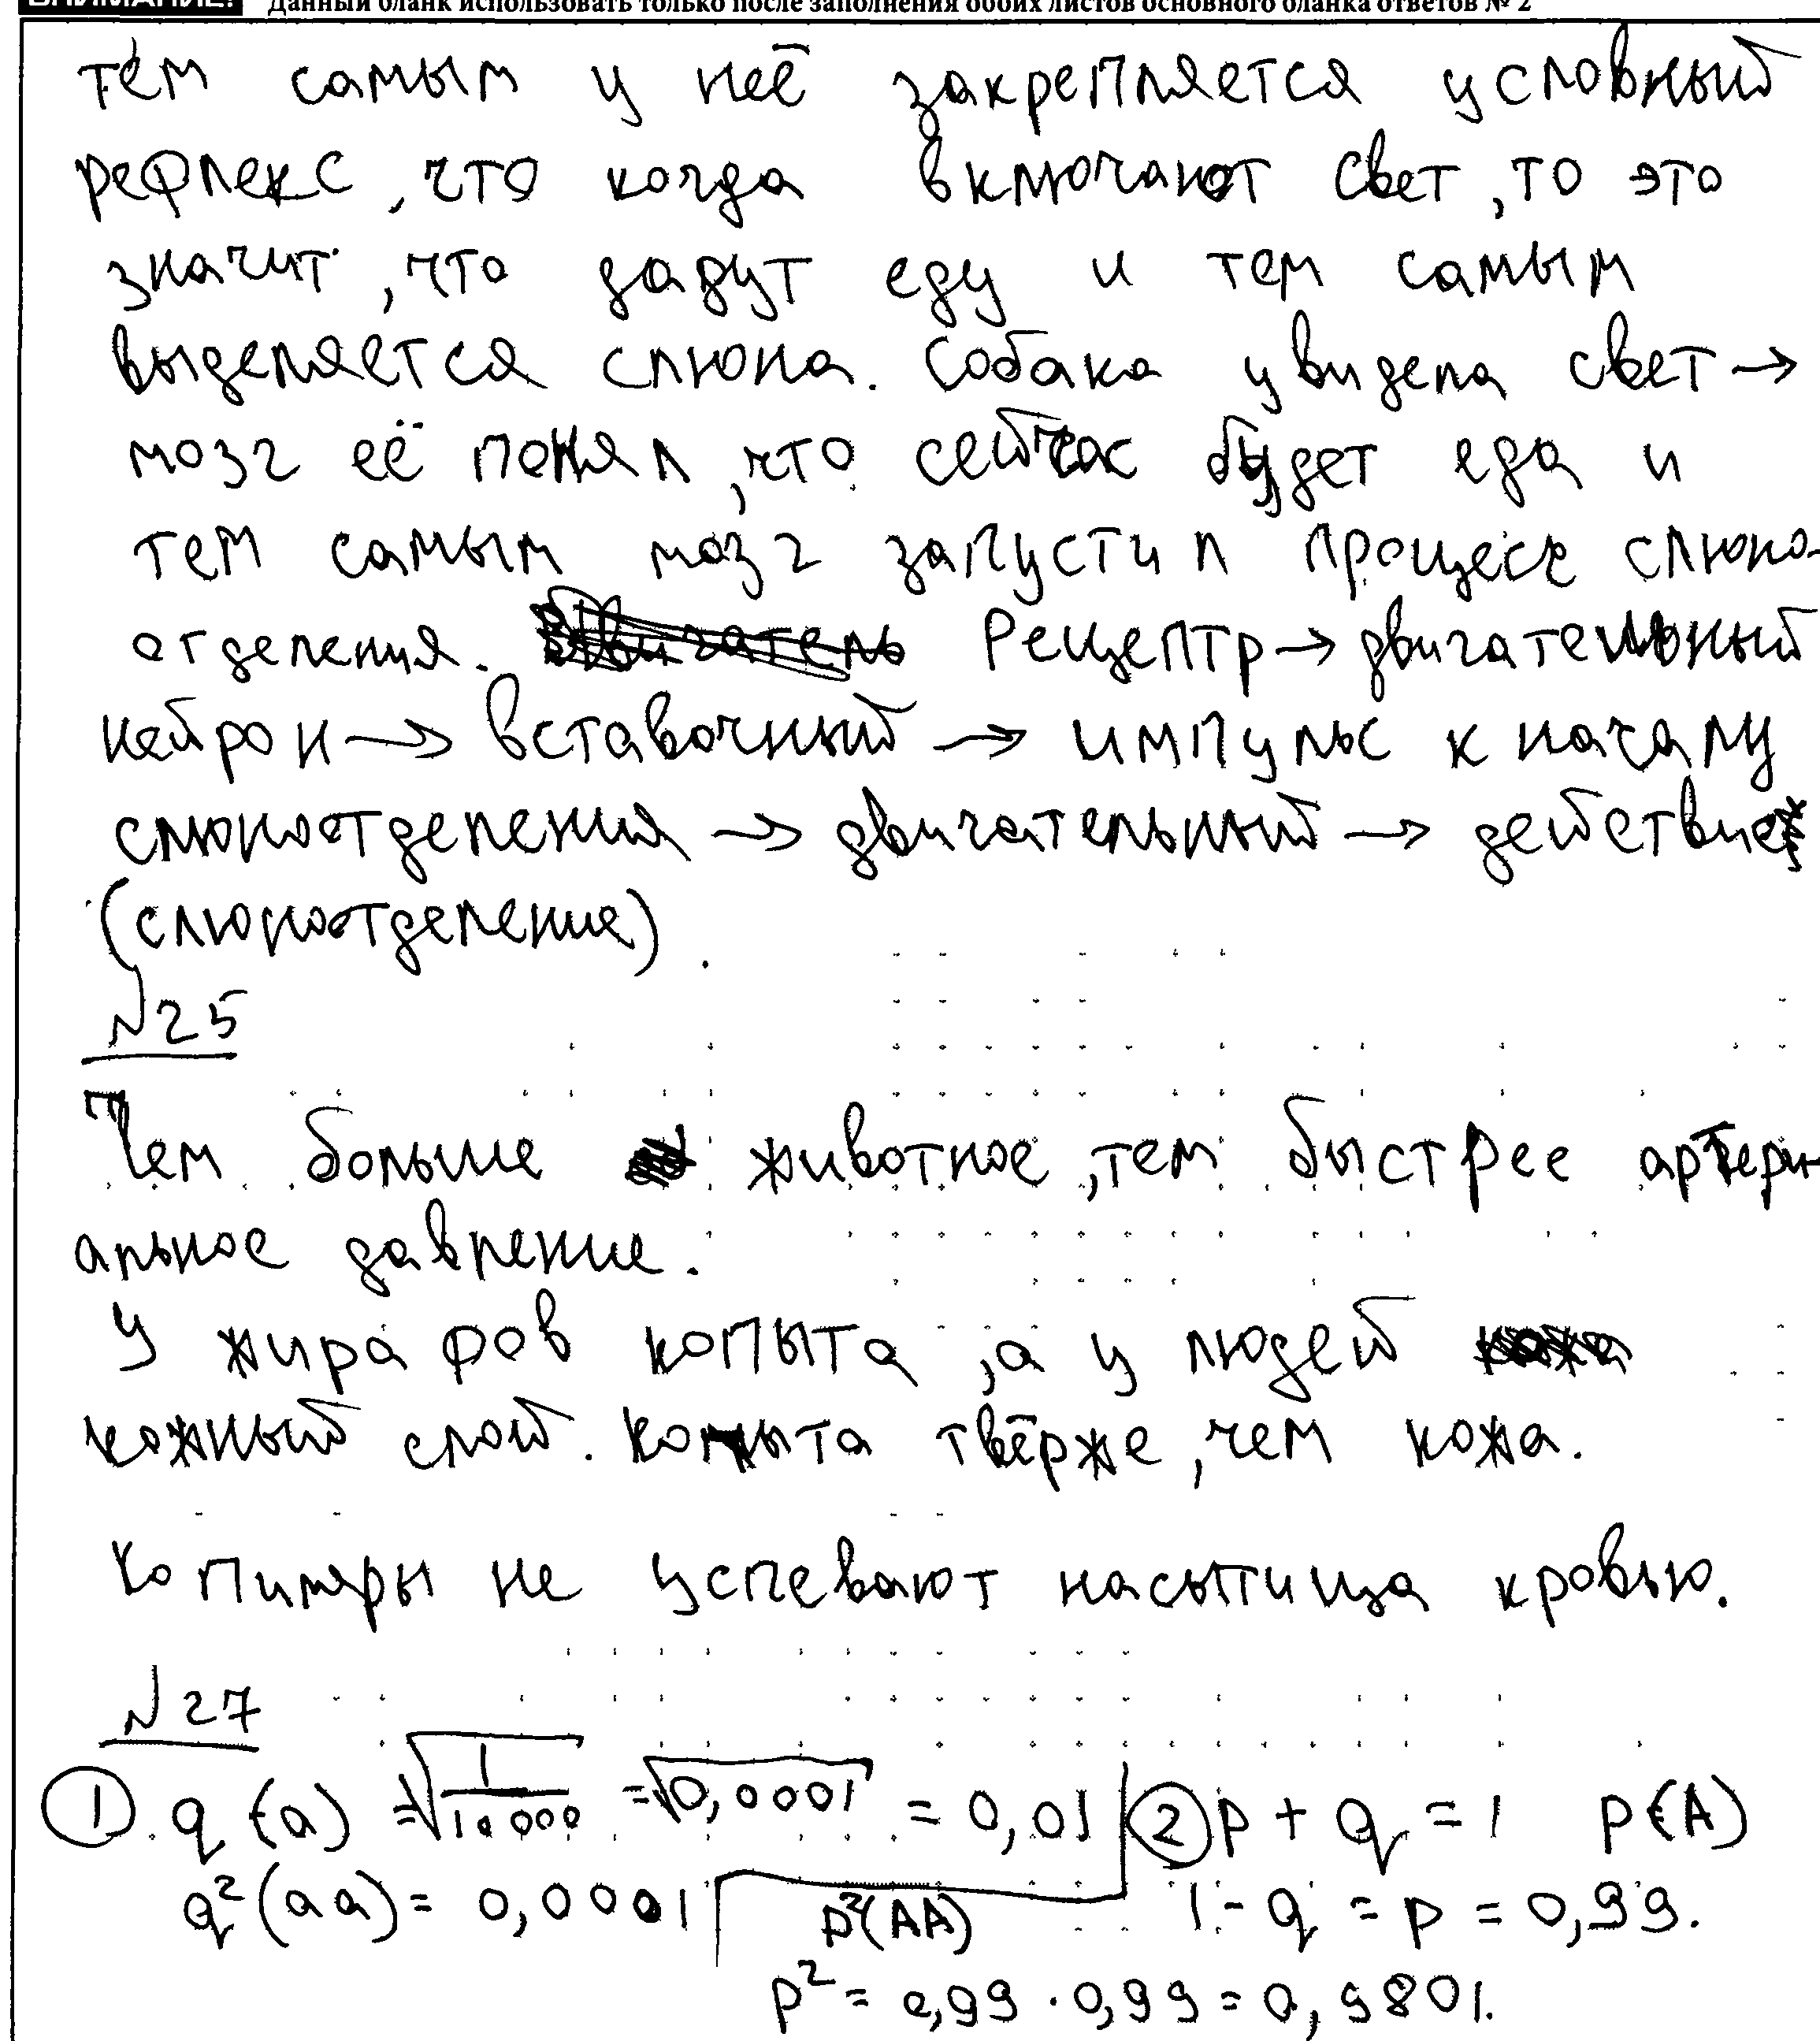 ВНИМАНИЕ! Данный бланк использовать только после заполнения обоих листов основного бланка ответов № 2
тем самым у неё закрепляется условный
рефлекс, что когда включают свет, то это
значит, что дадут еду и тем самым
выделяется слюна. Собака увидела свет →
мозг её понял, что сейчас будет еда и
тем самым мозг запустил процесс слюно-
отделения. Рецептр → двигательный
нейрон → вставочный → импульс к началу
слюноотделения → двигательный → действие
(слюноотделение).
№25
Чем больше животное, тем быстрее артери
альное давление.
У жирафов копыта, а у людей
кожный слой. Копыта твёрже, чем кожа.
Копиляры не успевают насытица кровью.
№27
① q (a) = √1/10000 = √0,0001 = 0,01 ② p + q = 1 p(A)
q²(aa) = 0,0001 p²(AA) 1 - q = p = 0,99.
p² = 0,99 · 0,99 = 0,9801.